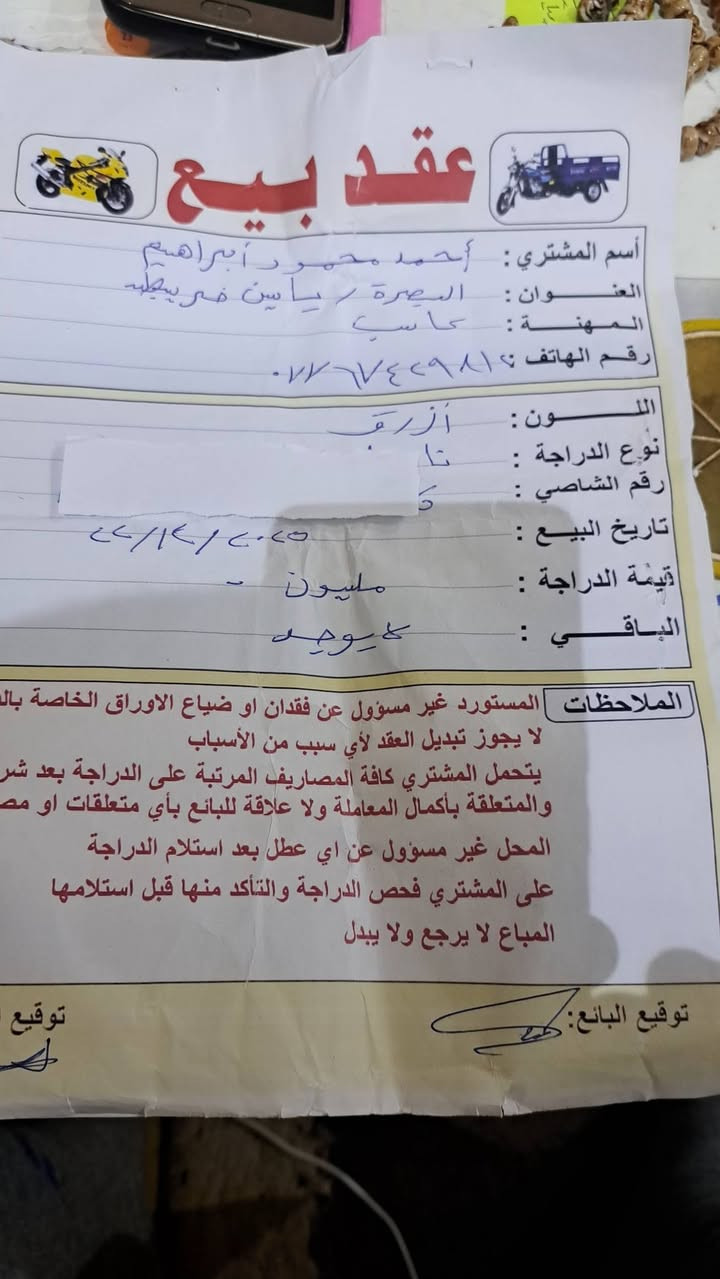 عقد بيع
أسم المشتري : أحمد محمود أبراهيم
العنوان : البصرة / ياسين خريبطه
المهنة : كاسب
رقم الهاتف :
اللون : أزرق
نوع الدراجة :
رقم الشاصي :
تاريخ البيع : ٢٢/١٢/٢٠٢٥
قيمة الدراجة : مليون -
الباقي : لا يوجد
الملاحظات
المستورد غير مسؤول عن فقدان او ضياع الاوراق الخاصة
لا يجوز تبديل العقد لأي سبب من الأسباب
يتحمل المشتري كافة المصاريف المرتبة على الدراجة بعد
والمتعلقة بأكمال المعاملة ولا علاقة للبائع بأي متعلقات او
المحل غير مسؤول عن اي عطل بعد استلام الدراجة
على المشتري فحص الدراجة والتأكد منها قبل استلامها
المباع لا يرجع ولا يبدل
توقيع البائع:
توقيع